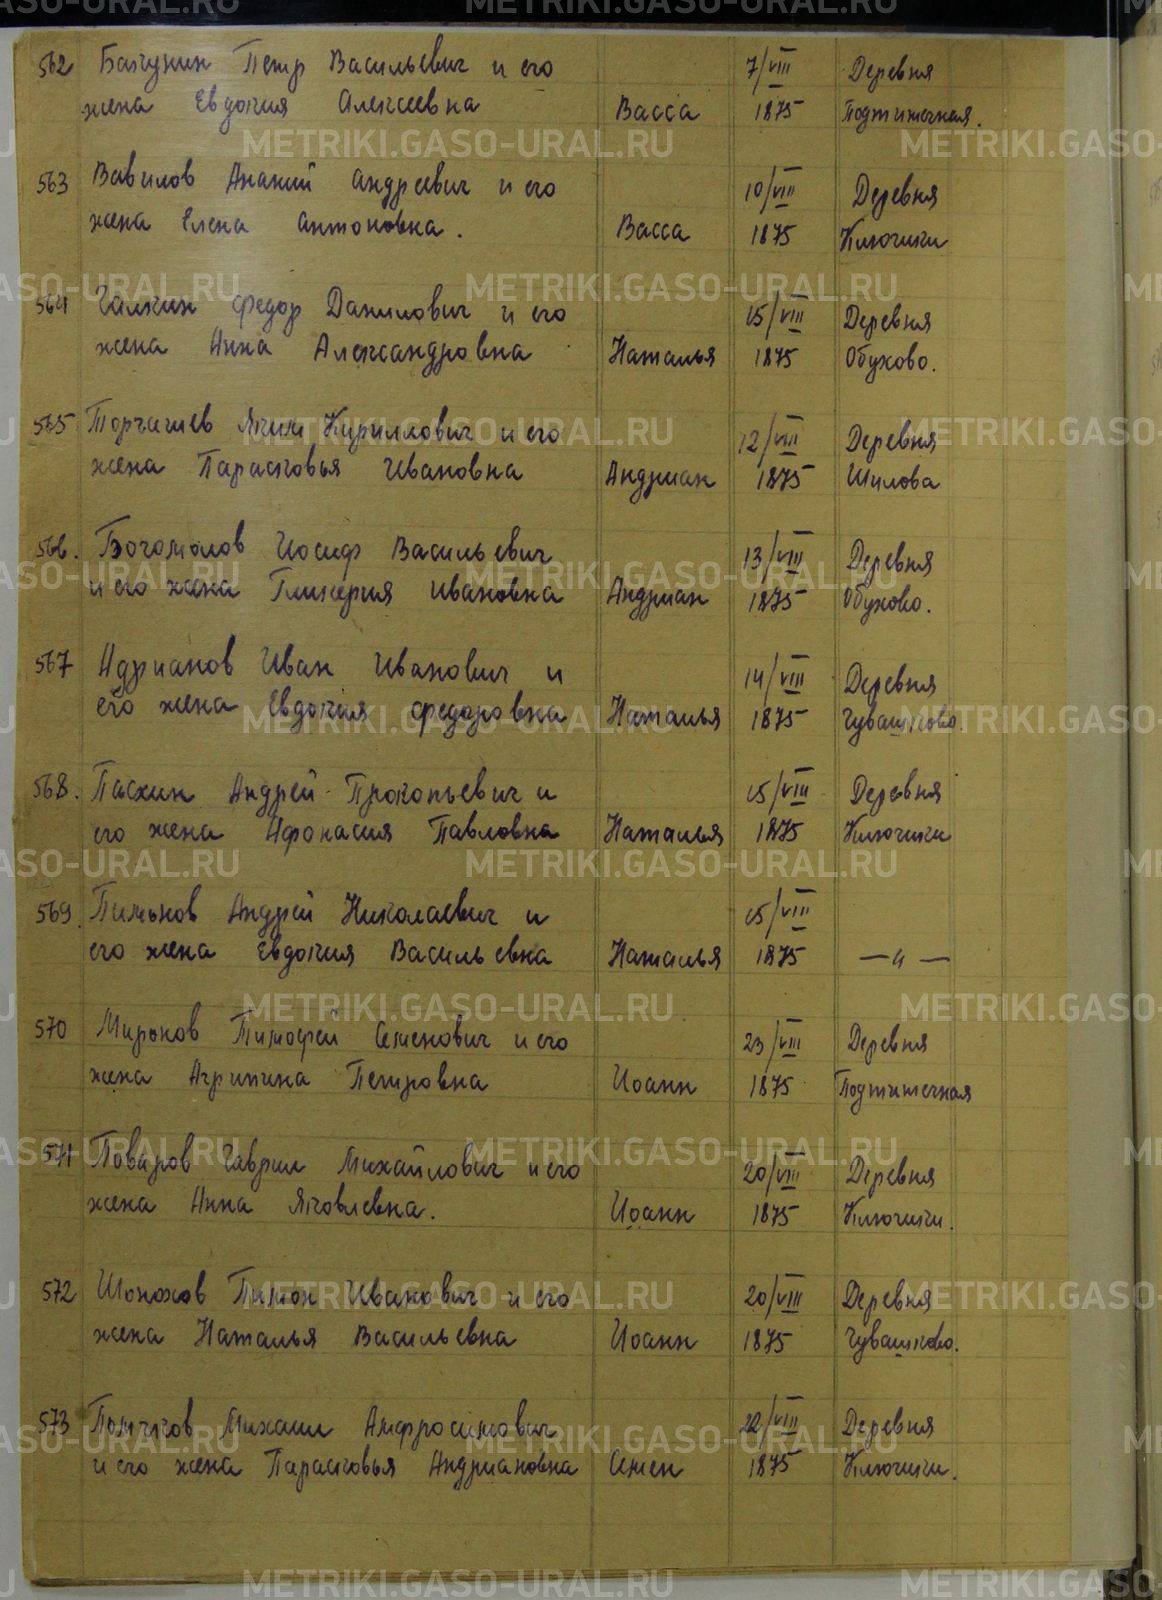 562 Бачунин Петр Васильевич и его 7/VIII Деревня
жена Евдокия Алексеевна Васса 1875 Подтипечная.
563 Вавилов Ананий Андреевич и его 10/VIII Деревня
жена Елена Антоновна. Васса 1875 Ключики
564 Галкин Федор Данилович и его 15/VIII Деревня
жена Анна Александровна Наталья 1875 Обухово.
565 Яким Кириллович и его 12/VIII Деревня
жена Парасковья Ивановна Андриан 1875 Шилова
566. Богомолов Иосиф Васильевич 13/VIII Деревня
и его жена Гликерия Ивановна Андриан 1875 Обухово.
567 Адрианов Иван Иванович и 14/VIII Деревня
его жена Евдокия Федоровна Наталья 1875 Чувашково.
568. Пасхин Андрей Прокопьевич и 15/VIII Деревня
его жена Афонасия Павловна Наталья 1875 Ключики
569. Андрей Николаевич и 15/VIII
его жена Евдокия Васильевна Наталья 1875 — " —
570 Миронов Тимофей Семенович и его 23/VIII Деревня
жена Агрипина Петровна Иоанн 1875
571 Поваров Гаврил Михайлович и его 20/VIII Деревня
жена Анна Яковлевна. Иоанн 1875 Ключики.
572 Шонохов Пимон Иванович и его 20/VIII Деревня
жена Наталья Васильевна Иоанн 1875 Чувашково.
573 Михаил Амфросимович 22/VIII Деревня
и его жена Парасковья Андриановна Семен 1875 Ключики.
METRIKI.GASO-URAL.RU